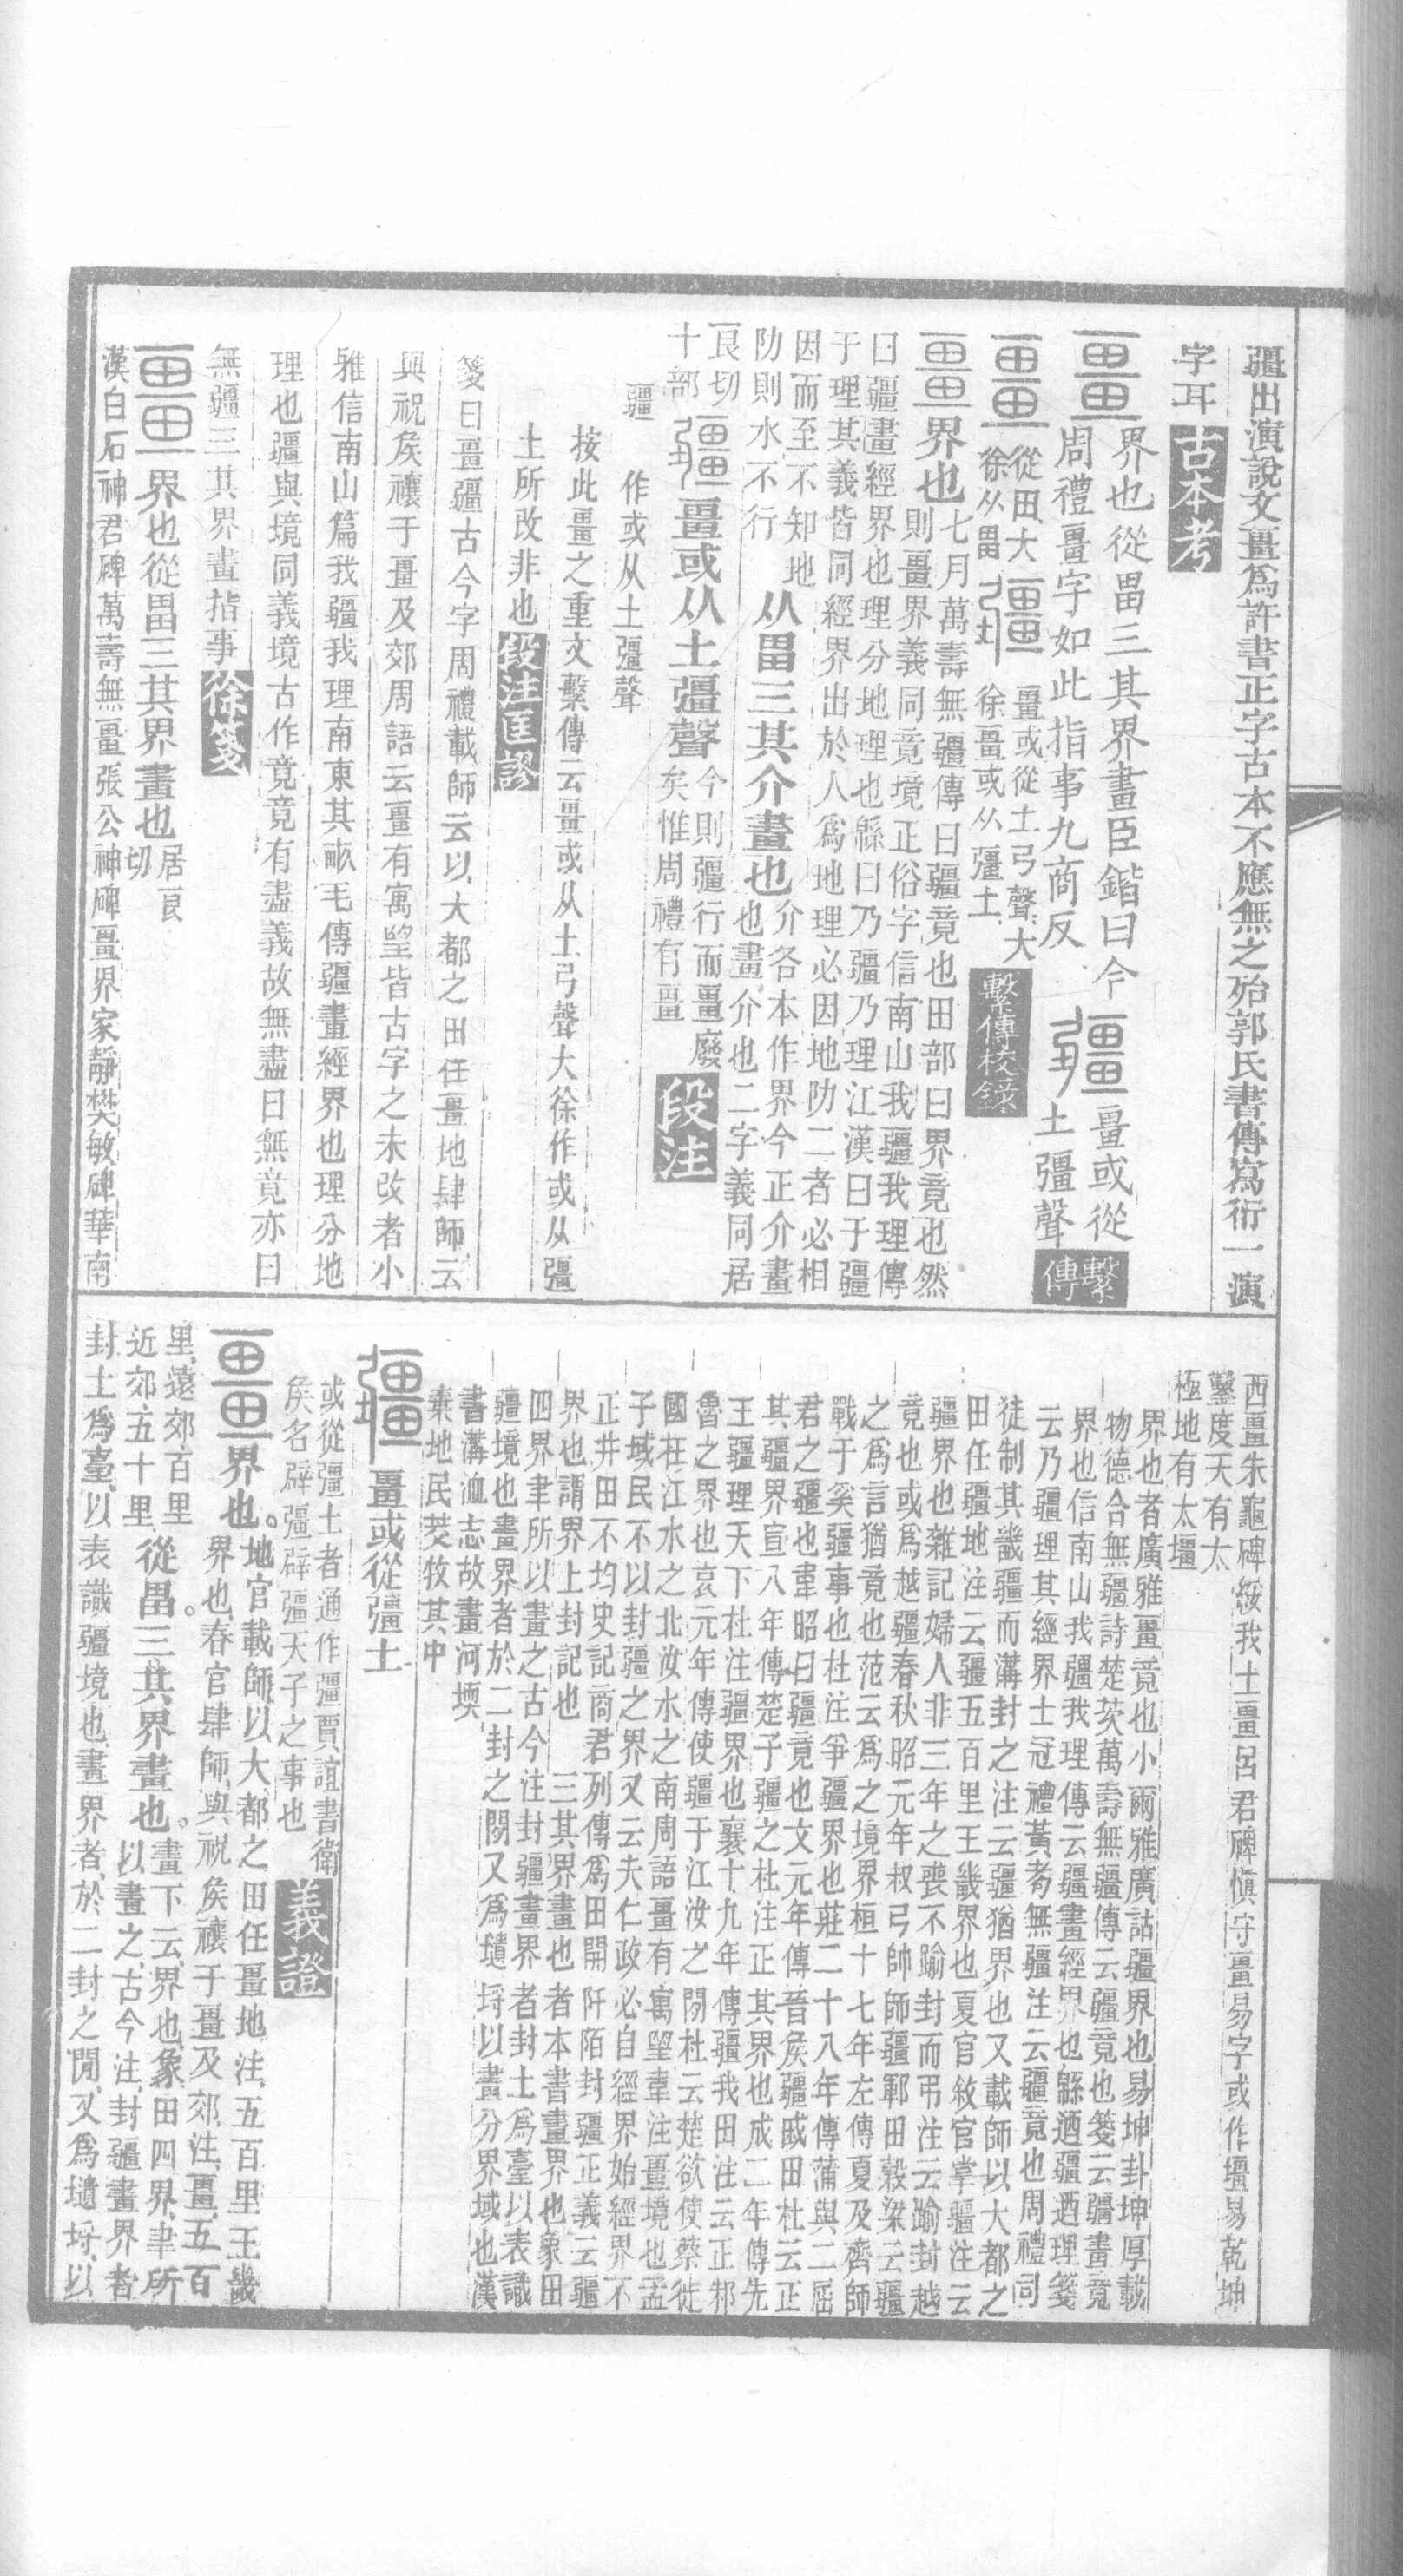 疆出演說文畺爲許書正字古本不應無之殆郭氏書傳寫衍一演
字耳古本考
畺界也從畕三其界畫臣鍇曰今
周禮畺字如此指事九商反
疆畺或從
土彊聲繫傳
畺從田大
徐从畕
疆畺或從土弓聲大
徐畺或从彊土
繫傳校錄
畺界也七月萬壽無疆傳曰疆竟也田部曰界竟也然
則畺界義同竟境正俗字信南山我疆我理傳
曰疆畫經界也理分地理也緜曰乃疆乃理江漢曰于疆
于理其義皆同經界出於人爲地理必因地阞二者必相
因而至不知地
阞則水不行
从畕三其介畫也介各本作界今正介畫
也畫介也二字義同居
良切
十部
疆畺或从土彊聲今則疆行而畺廢
矣惟周禮有畺
段注
疆
作或从土彊聲
按此畺之重文繫傳云畺或从土弓聲大徐作或从彊
土所改非也段注匡謬
箋曰畺疆古今字周禮載師云以大都之田任畺地肆師云
與祝矦禳于畺及郊周語云畺有寓望皆古字之未改者小
雅信南山篇我疆我理南東其畝毛傳疆畫經界也理分地
理也疆與境同義境古作竟竟有盡義故無盡曰無竟亦曰
無疆三其界畫指事徐箋
畺界也從畕三其界畫也居良
切
漢白石神君碑萬壽無畺張公神碑畺界家靜樊敏碑華南
西畺朱龜碑綏我土畺呂君碑愼守畺易字或作壃易乾坤
鑿度天有太
極地有太壃
界也者廣雅畺竟也小爾雅廣詁疆界也易坤卦坤厚載
物德合無疆詩楚茨萬壽無疆傳云疆竟也箋云疆畫竟
界也信南山我疆我理傳云疆畫經界也緜迺疆迺理箋
云乃疆理其經界士冠禮黃耇無疆注云疆竟也周禮司
徒制其畿疆而溝封之注云疆猶界也又載師以大都之
田任疆地注云疆五百里王畿界也夏官敘官掌疆注云
疆界也雜記婦人非三年之喪不踰封而弔注云踰封越
竟也或爲越疆春秋昭元年叔弓帥師疆鄆田榖梁云疆
之爲言猶竟也范云爲之境界桓十七年左傳夏及齊師
戰于奚疆事也杜注爭疆界也莊二十八年傳蒲與二屈
君之疆也韋昭曰疆竟也文元年傳晉矦疆戚田杜云正
其疆界宣八年傳楚子疆之杜注正其界也成二年傳先
王疆理天下杜注疆界也襄十九年傳疆我田注云正邾
魯之界也哀元年傳使疆于江汝之閒杜云楚欲使蔡徙
國在江水之北汝水之南周語畺有寓望韋注畺境也孟
子域民不以封疆之界又云夫仁政必自經界始經界不
正井田不均史記商君列傳爲田開阡陌封疆正義云疆
界也謂界上封記也　三其界畫也者本書畫界也象田
四界聿所以畫之古今注封疆畫界者封土爲臺以表識
疆境也畫界者於二封之閒又爲壝埒以畫分界域也漢
書溝洫志故盡河堧
棄地民茭牧其中
疆畺或從彊土
或從彊土者通作彊賈誼書衛
矦名辟彊辟彊天子之事也
義證
畺界也。地官載師以大都之田任畺地注五百里王畿
界也春官肆師與祝矦禳于畺及郊注畺五百
里遠郊百里
近郊五十里
從畕。三其界畫也。畫下云界也象田四界聿所
以畫之古今注封疆畫界者
封土爲臺以表識疆境也畫界者於二封之閒又爲壝埒以